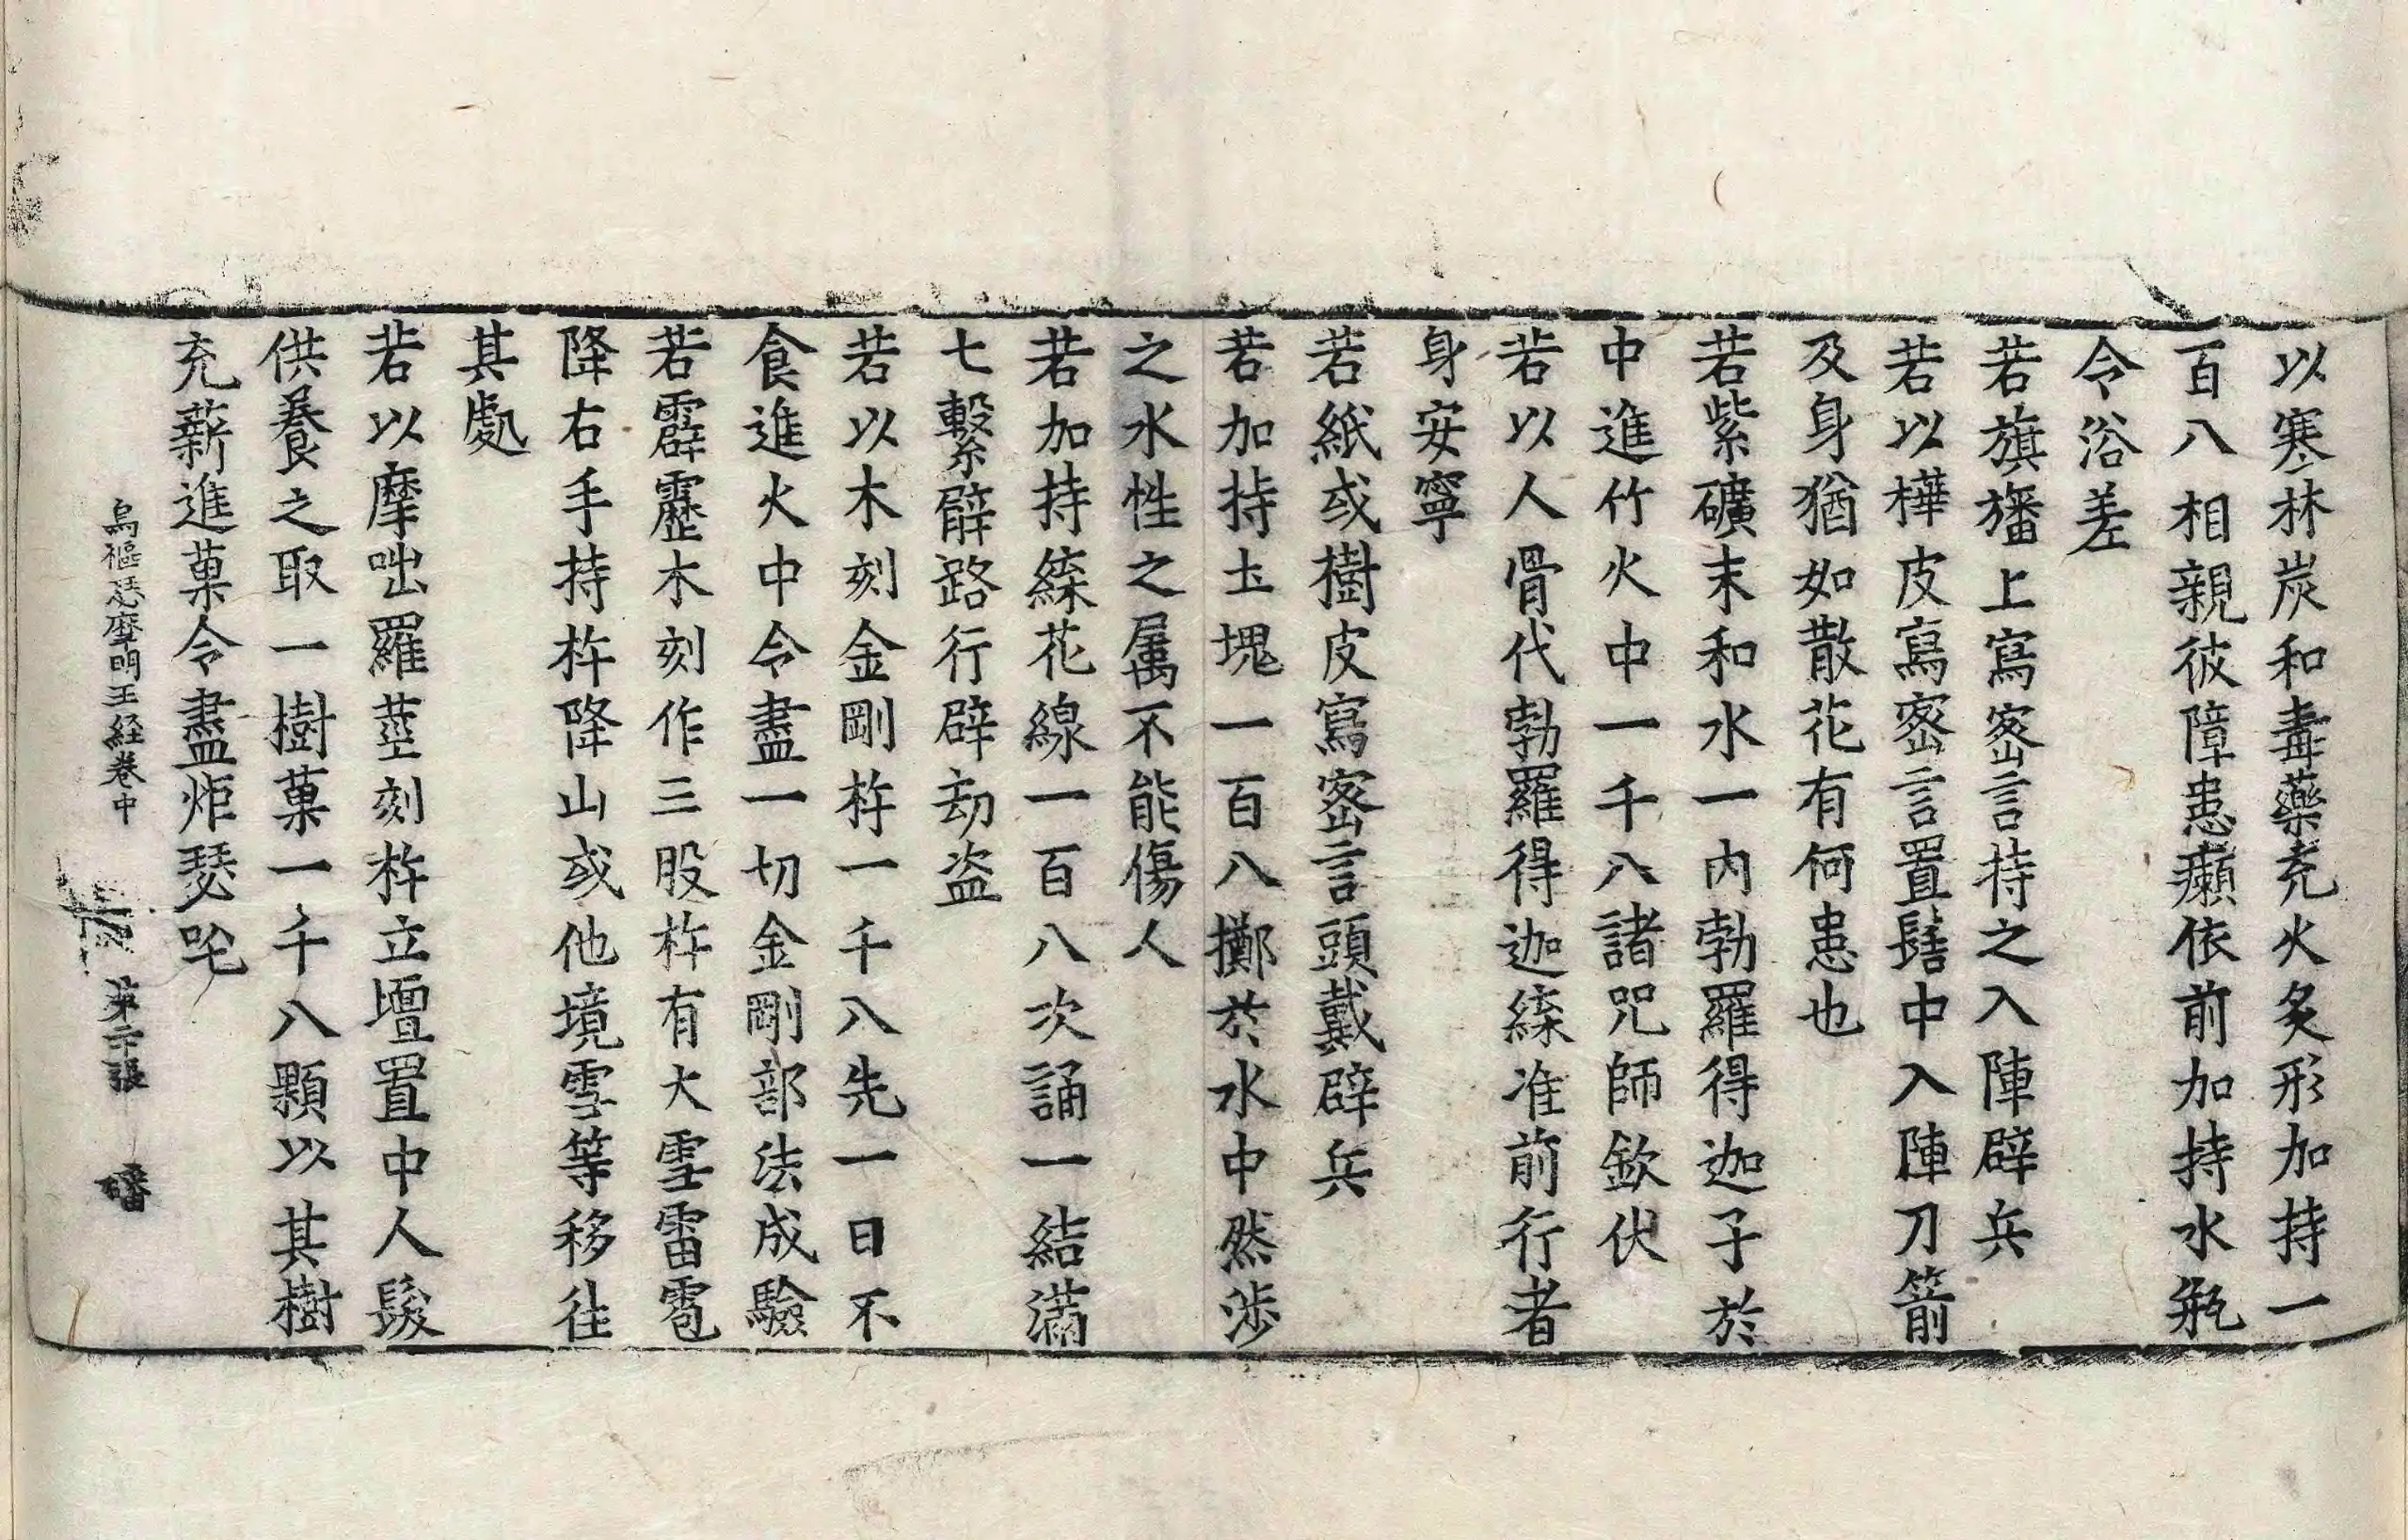 以寒林炭和毒藥充火炙形加持一
百八相親彼障患癩依前加持水瓶
令浴差
若旗旛上寫密言持之入陣辟兵
若以樺皮寫密言置髻中入陣刀箭
及身猶如散花有何患也
若紫礦末和水一內勃羅得迦子於
中進竹火中一千八諸咒師欽伏
若以人骨代勃羅得迦縩准前行者
身安寧
若紙或樹皮寫密言頭戴辟兵
若加持土塊一百八擲於水中然涉
之水性之屬不能傷人
若加持縩花線一百八次誦一結滿
七繫臂路行辟劫盜
若以木刻金剛杵一千八先一日不
食進火中令盡一切金剛部法成驗
若霹靂木刻作三股杵有大雪雷雹
降右手持杵降山或他境雪等移往
其處
若以摩咄羅莖刻杵立壇置中人髮
供養之取一樹菓一千八顆以其樹
充薪進菓令盡炬瑟吒
烏樞瑟摩明王経卷中 第二十張